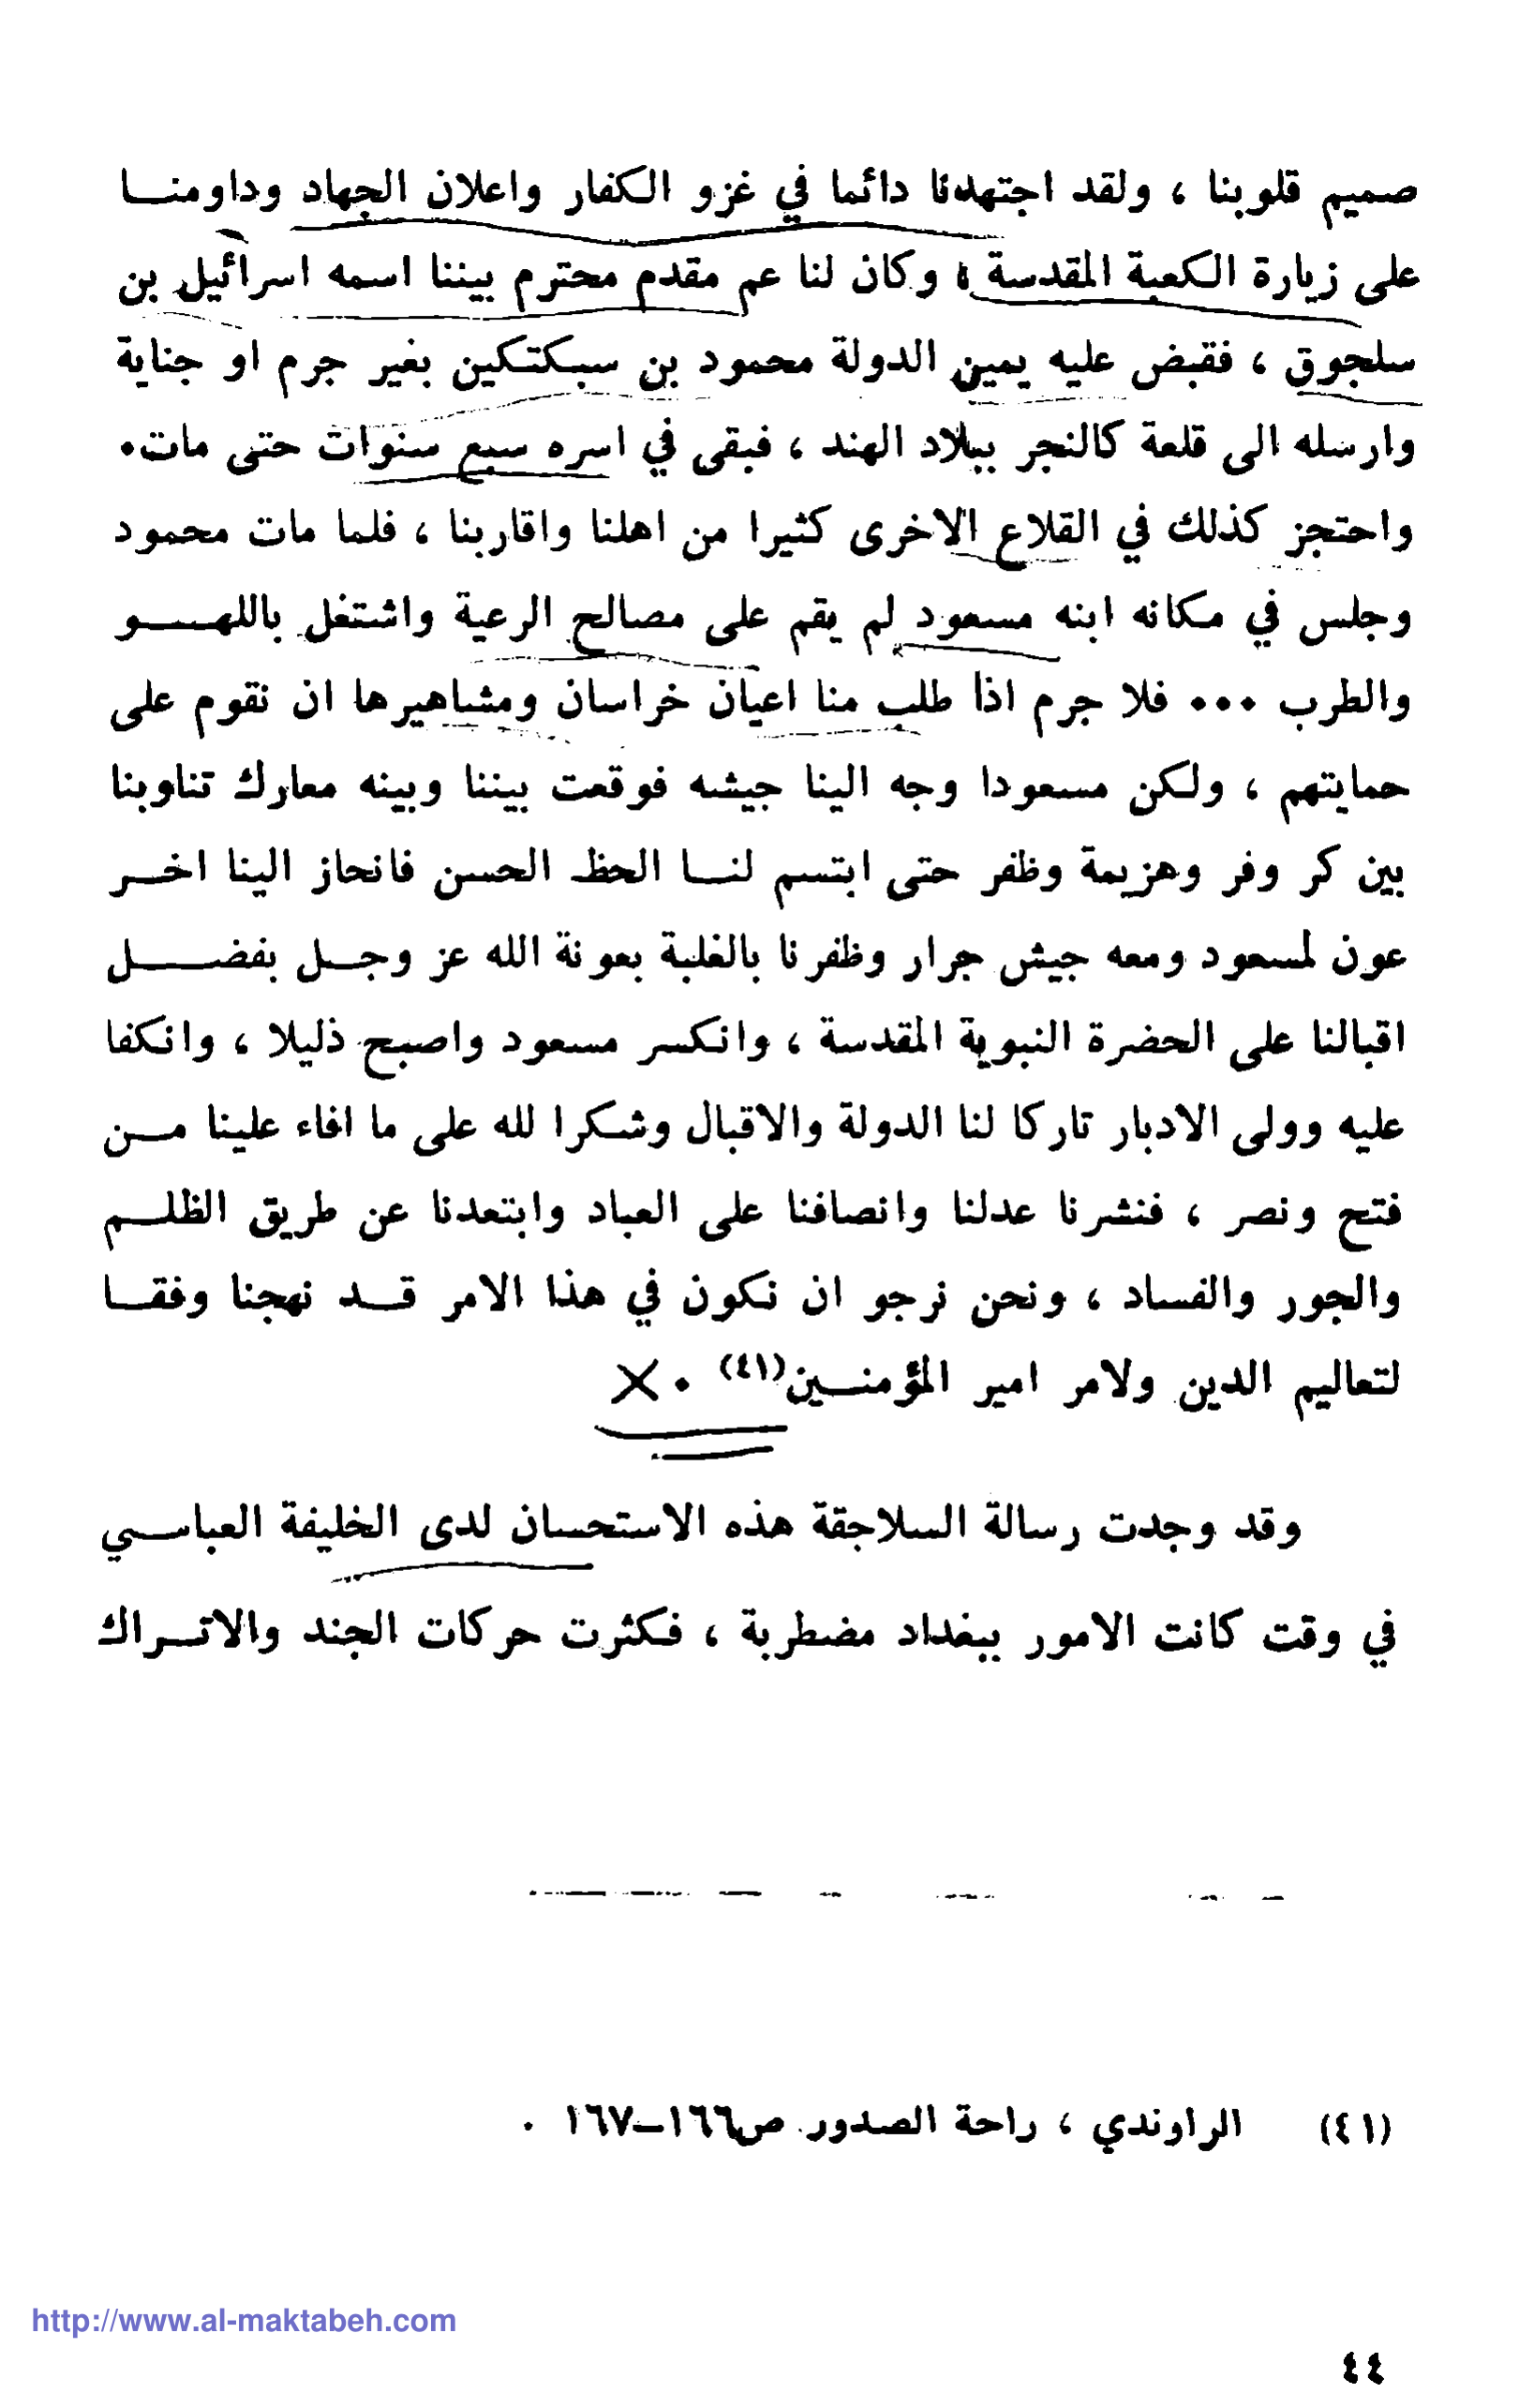 صميم قلوبنا ، ولقد اجتهدنا دائما في غزو الكفار واعلان الجهاد وداومنا
على زيارة الكعبة المقدسة ، وكان لنا عم مقدم محترم بيننا اسمه اسرائيل بن
سلجوق ، فقبض عليه يمين الدولة محمود بن سبكتكين بغير جرم او جناية
وارسله الى قلعة كالنجر ببلاد الهند ، فبقى في اسره سبع سنوات حتى مات.
واحتجز كذلك في القلاع الاخرى كثيرا من اهلنا واقاربنا ، فلما مات محمود
وجلس في مكانه ابنه مسعود لم يقم على مصالح الرعية واشتغل باللهو
والطرب ... فلا جرم اذا طلب منا اعيان خراسان ومشاهيرها ان نقوم على
حمايتهم ، ولكن مسعودا وجه الينا جيشه فوقعت بيننا وبينه معارك تناوبنا
بين كر وفر وهزيمة وظفر حتى ابتسم لنا الحظ الحسن فانحاز الينا اخر
عون لمسعود ومعه جيش جرار وظفرنا بالغلبة بعونة الله عز وجل بفضل
اقبالنا على الحضرة النبوية المقدسة ، وانكسر مسعود واصبح ذليلا ، وانكفا
عليه وولى الادبار تاركا لنا الدولة والاقبال وشكرا لله على ما افاء علينا من
فتح ونصر ، فنشرنا عدلنا وانصافنا على العباد وابتعدنا عن طريق الظلم
والجور والفساد ، ونحن نرجو ان نكون في هذا الامر قد نهجنا وفقا
لتعاليم الدين ولامر امير المؤمنين(٤١) . X
وقد وجدت رسالة السلاجقة هذه الاستحسان لدى الخليفة العباسي
في وقت كانت الامور ببغداد مضطربة ، فكثرت حركات الجند والاتراك
(٤١) الراوندي ، راحة الصدور ص١٦٦–١٦٧ .
http://www.al-maktabeh.com
٤٤